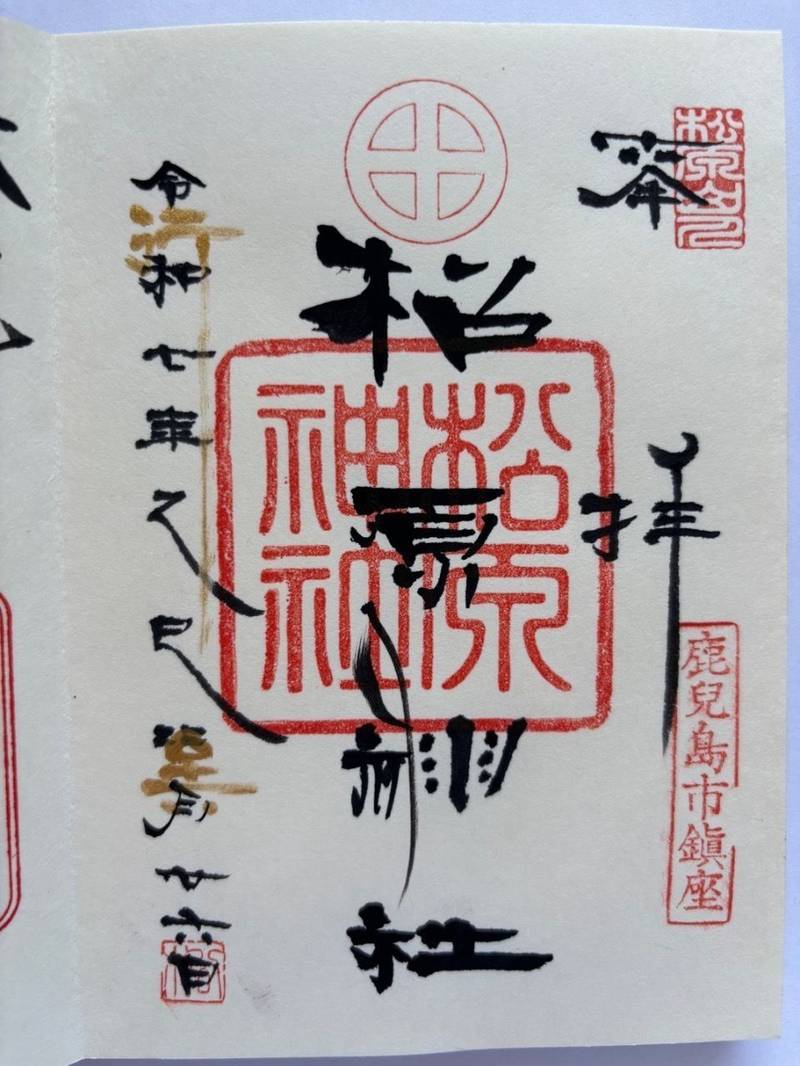 奉拝
鹿兒島市鎮座
松原神社
松原
神社
令和七年乙巳 月廿六日